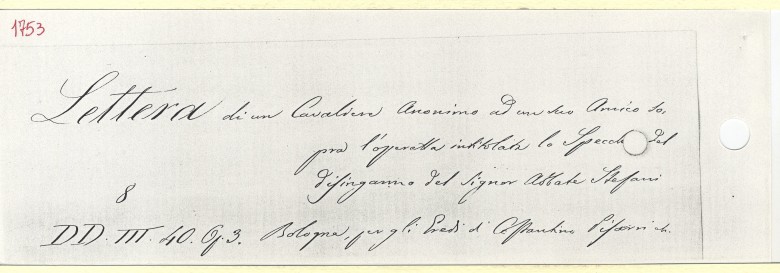 1753
Lettera di un Cavaliere Anonimo ad un suo Amico so,
pra l'operetta intitolata lo Specch del
disinganno del Signor Abbate Stefani
8
DD. III. 40. Op. 3. Bologna, per gli Eredi di